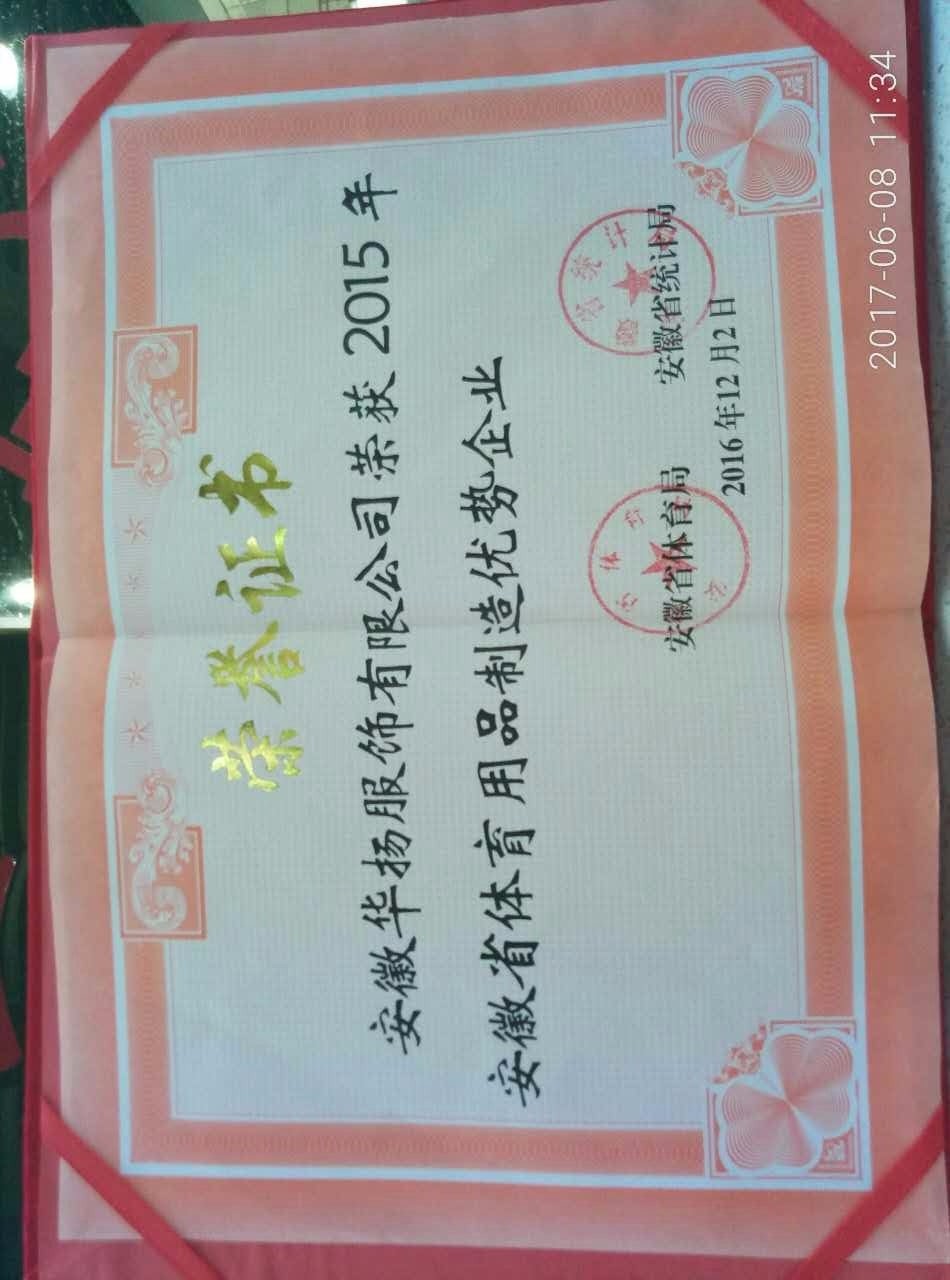 荣誉证书
安徽华扬服饰有限公司荣获2015年
安徽省体育用品制造优势企业
安徽省体育局 安徽省统计局
2016年12月2日
2017-06-08 11:34